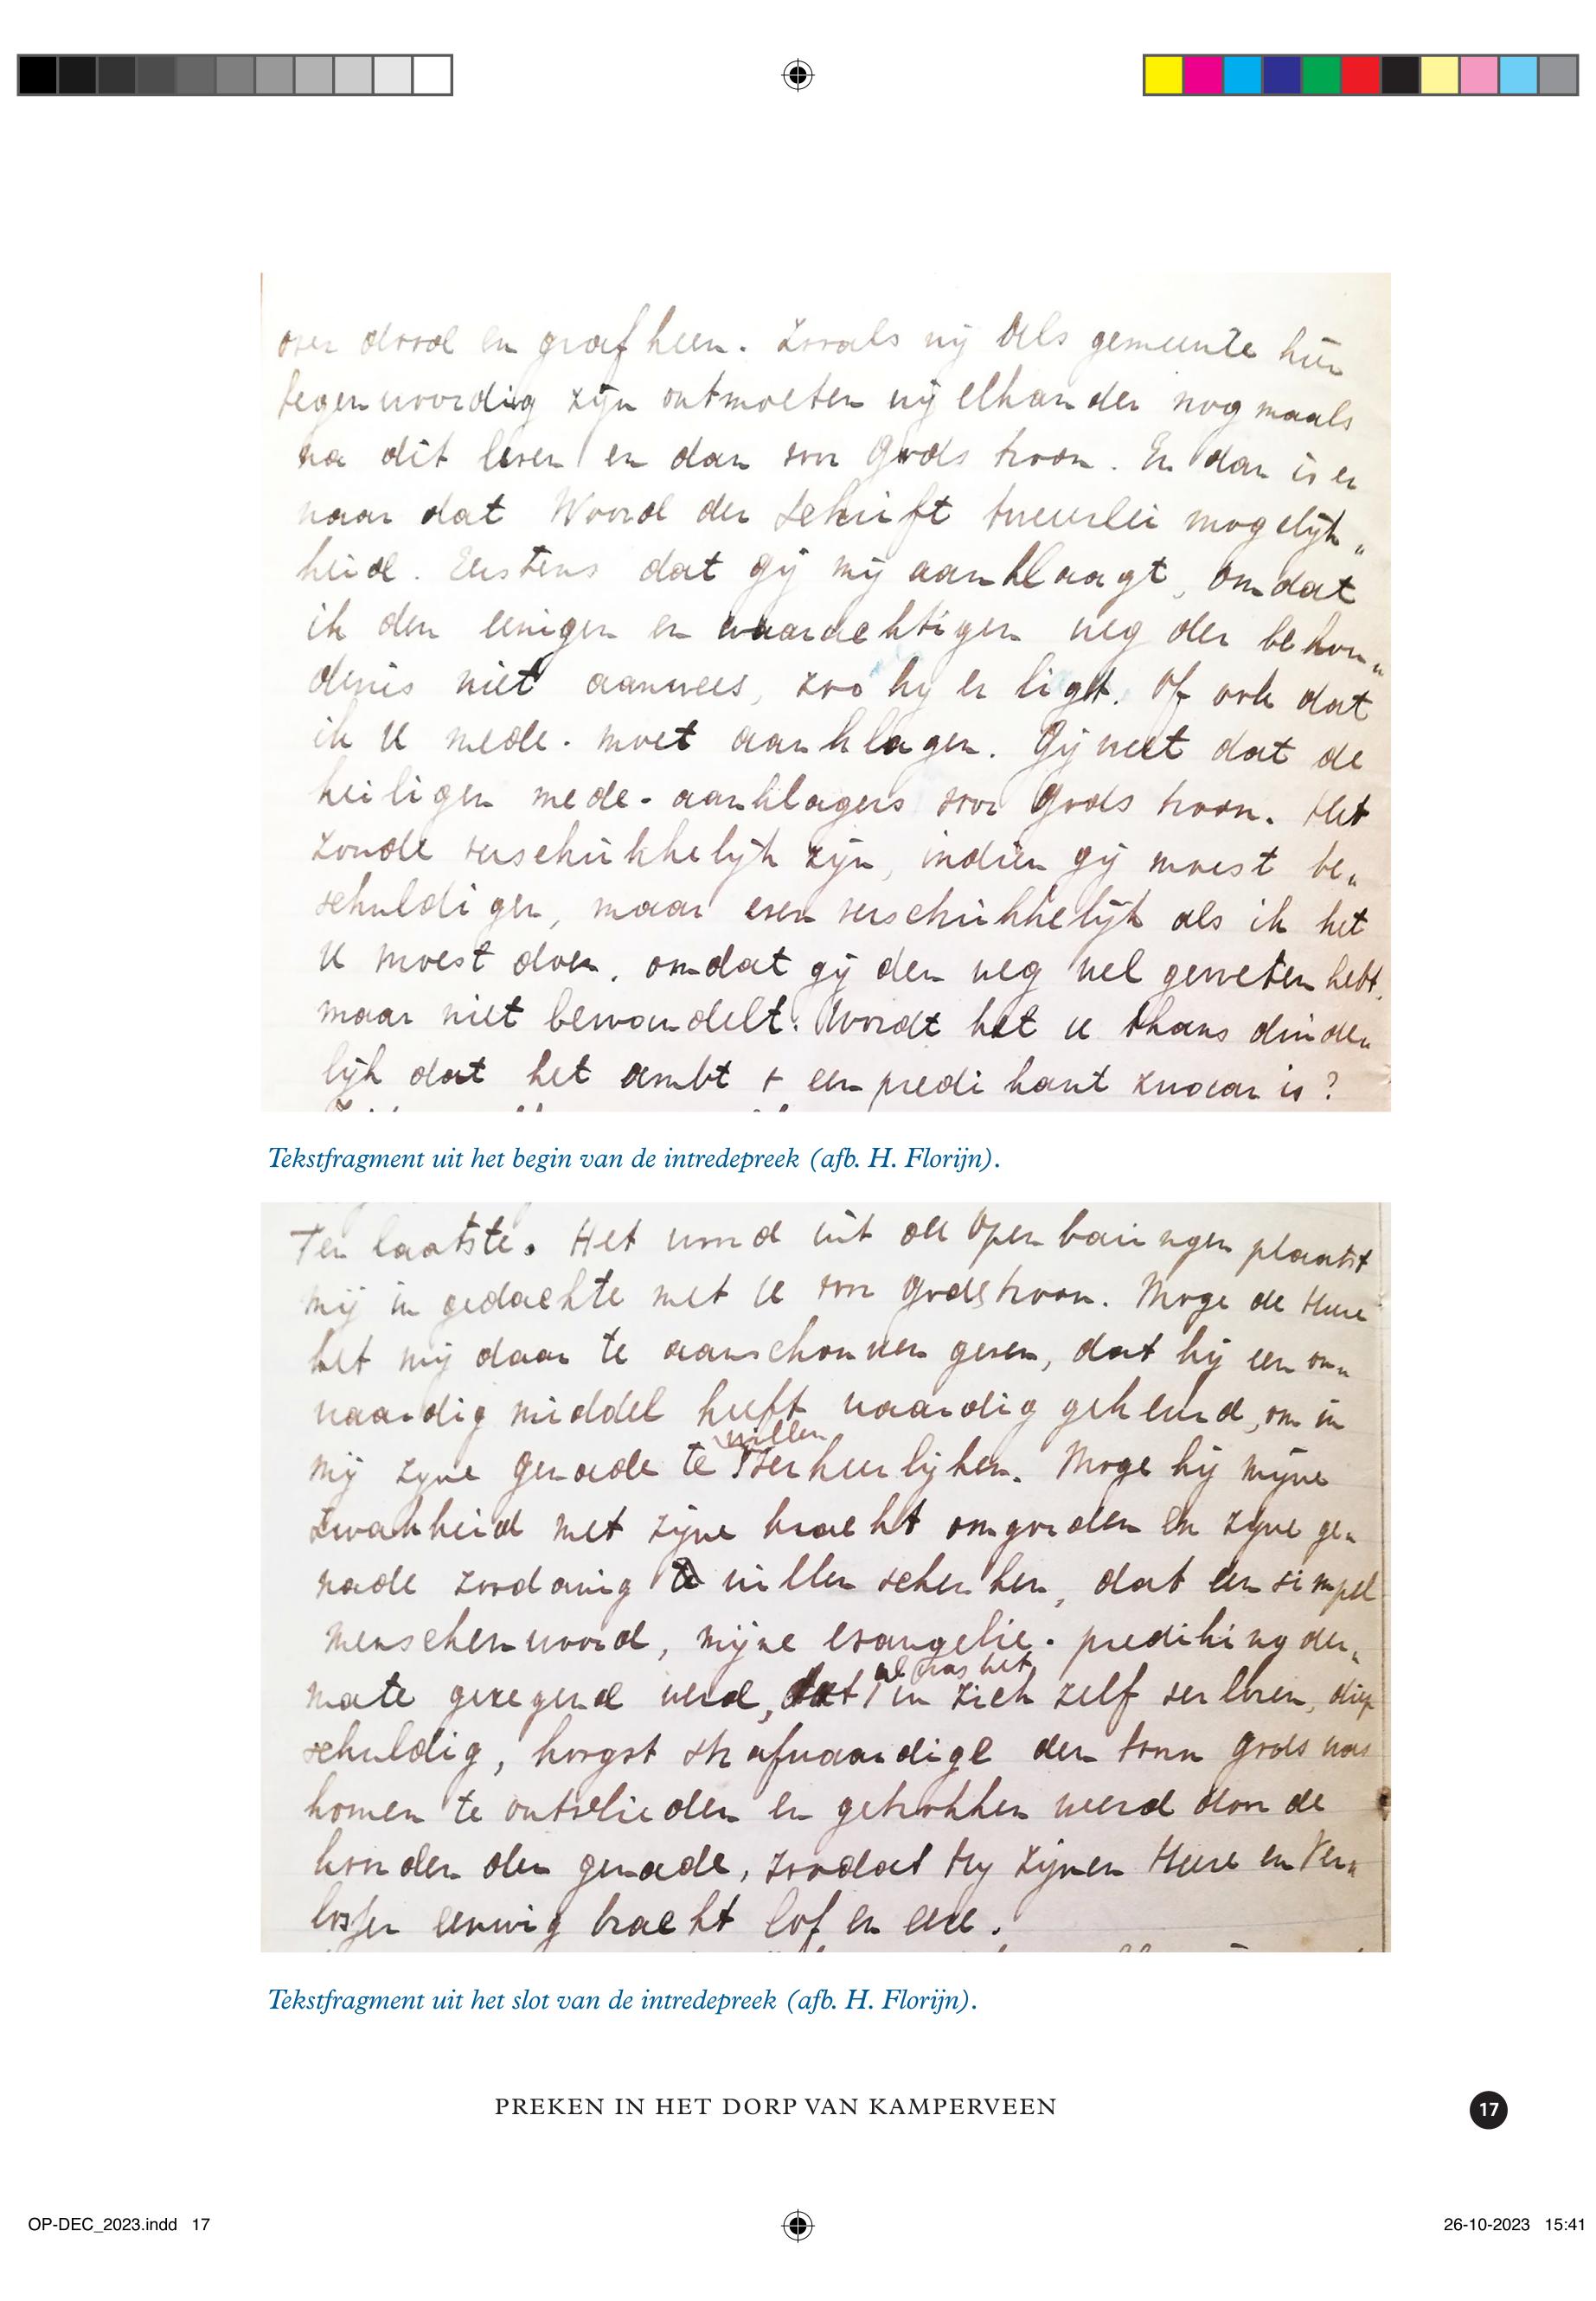 over dood en graf heen. Zooals wij als gemeente hier
tegenwoordig zijn ontmoeten wij elkander nog maals
na dit leven en dan voor Gods troon. En dan is er
naar dat Woord der Schrift tweeërlei mogelijk„
heid. Eerstens dat gij mij aanklaagt, omdat
ik den eenigen en waarachtigen weg der behou„
denis niet aanwees, zoo hij er ligt. Of ook dat
ik U mede. moet aanklagen. Gij weet dat de
heiligen mede-aanklagers voor Gods troon. Het
zoude verschrikkelijk zijn, indien gij moest be„
schuldigen, maar even verschrikkelijk als ik het
U moest doen, omdat gij den weg wel geweten hebt,
maar niet bewandelt. Wordt het u thans duide„
lijk dat het ambt v een predikant zwaar is?
Tekstfragment uit het begin van de intredepreek (afb. H. Florijn).
Ten laatste. Het woord uit de Openbaringen plaatst
mij in gedachte met U voor Gods troon. Moge de Heere
het mij daar te aanschouwen geven, dat hij een on„
waardig middel heeft waardig gekeurd, om in
willen
mij zijne genade te verheerlijken. Moge hij mijne
zwakheid met zijne kracht omgorden en zijne ge„
nade zoodanig te willen schenken, dat een simpel
menschenwoord, mijne evangelie-prediking der„
al was het
mate gezegend werd, dat in zich zelf verloren, diep
schuldig, hoogst strafwaardige den toorn Gods was
komen te ontvlieden en getrokken werd door de
koorden der genade, zoodat hij zijnen Heere en Ver„
losser eeuwig bracht lof en eere.
Tekstfragment uit het slot van de intredepreek (afb. H. Florijn).
PREKEN IN HET DORP VAN KAMPERVEEN
17
OP-DEC_2023.indd 17
26-10-2023 15:41